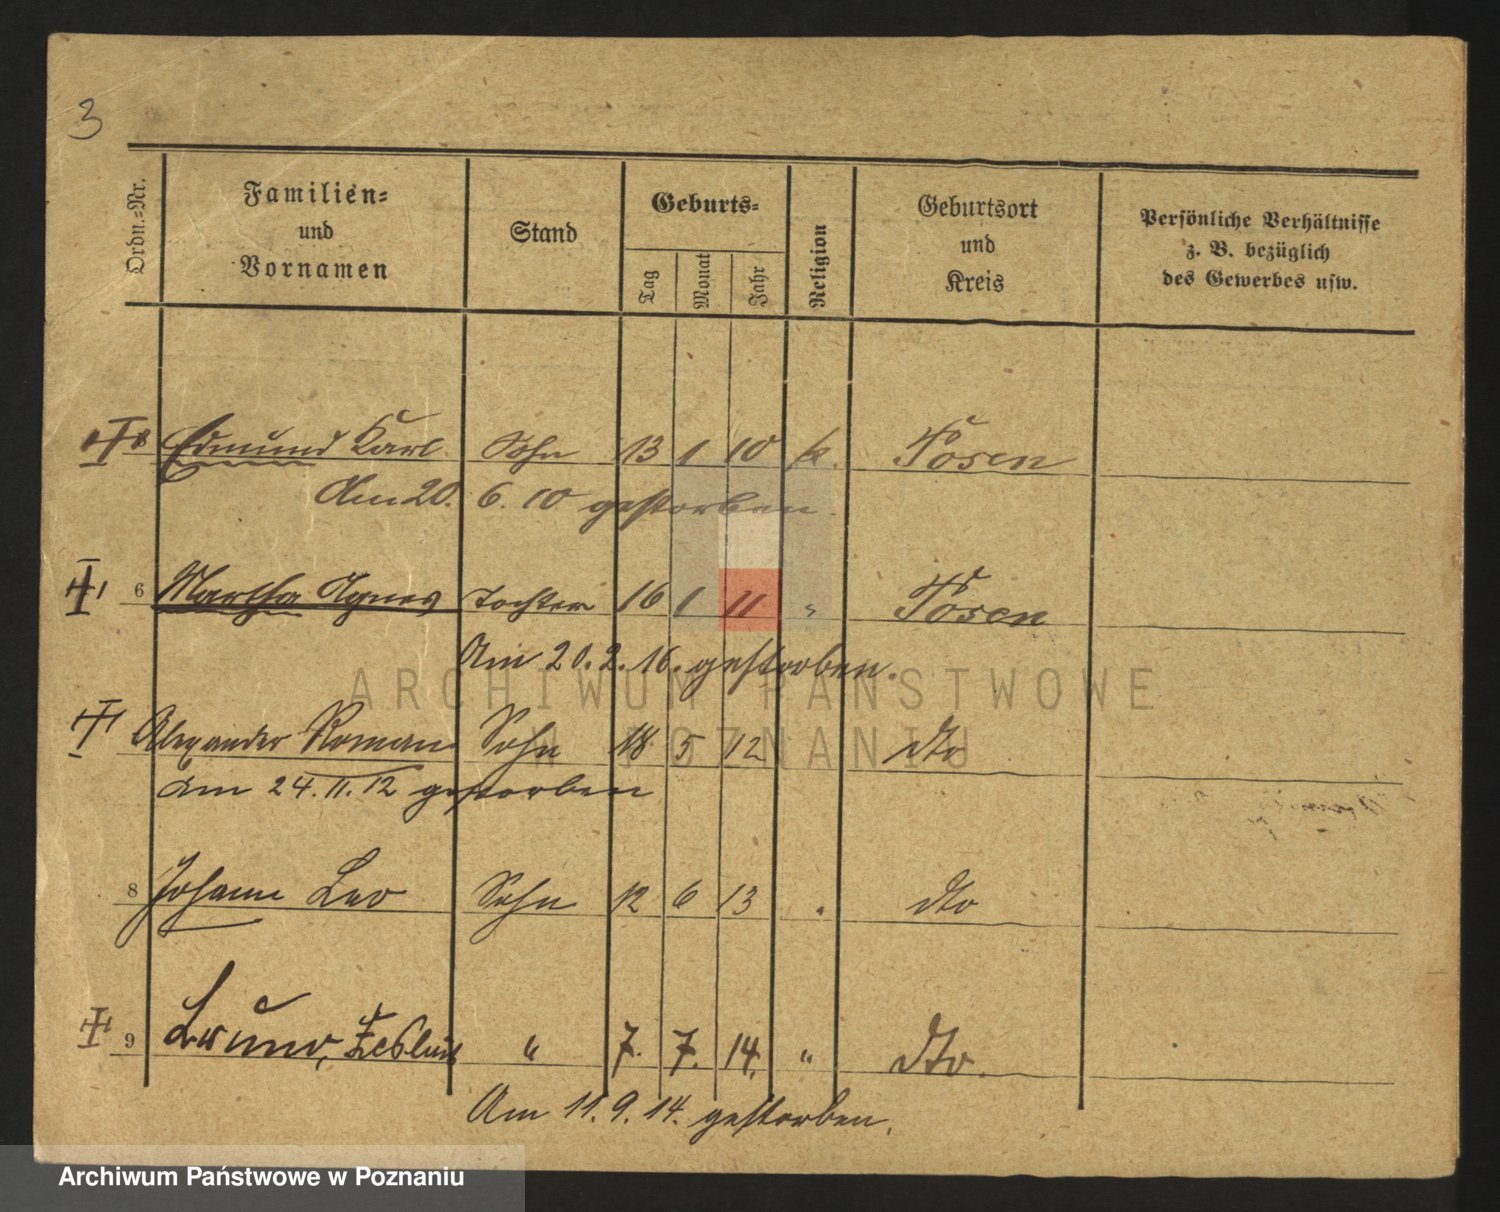 3
Ordn.-Nr.
Familien-
und
Vornamen
Stand
Geburts-
Tag
Monat
Jahr
Religion
Geburtsort
und
Kreis
Persönliche Verhältnisse
z. B. bezüglich
des Gewerbes usw.
Edmund Karl Sohn 13 1 10 k. Posen
Am 20. 6. 10 gestorben.
6 Martha Agnes Tochter 16 1 11 " Posen
Am 20. 2. 16. gestorben.
Alexander Roman Sohn 18 5 12 dto
Am 24. 11. 12 gestorben
8 Johann Leo Sohn 12 6 13 " dto
9 Bruno, " 7. 7. 14. " dto.
Am 11. 9. 14. gestorben.
ARCHIWUM PAŃSTWOWE
W POZNANIU
Archiwum Państwowe w Poznaniu